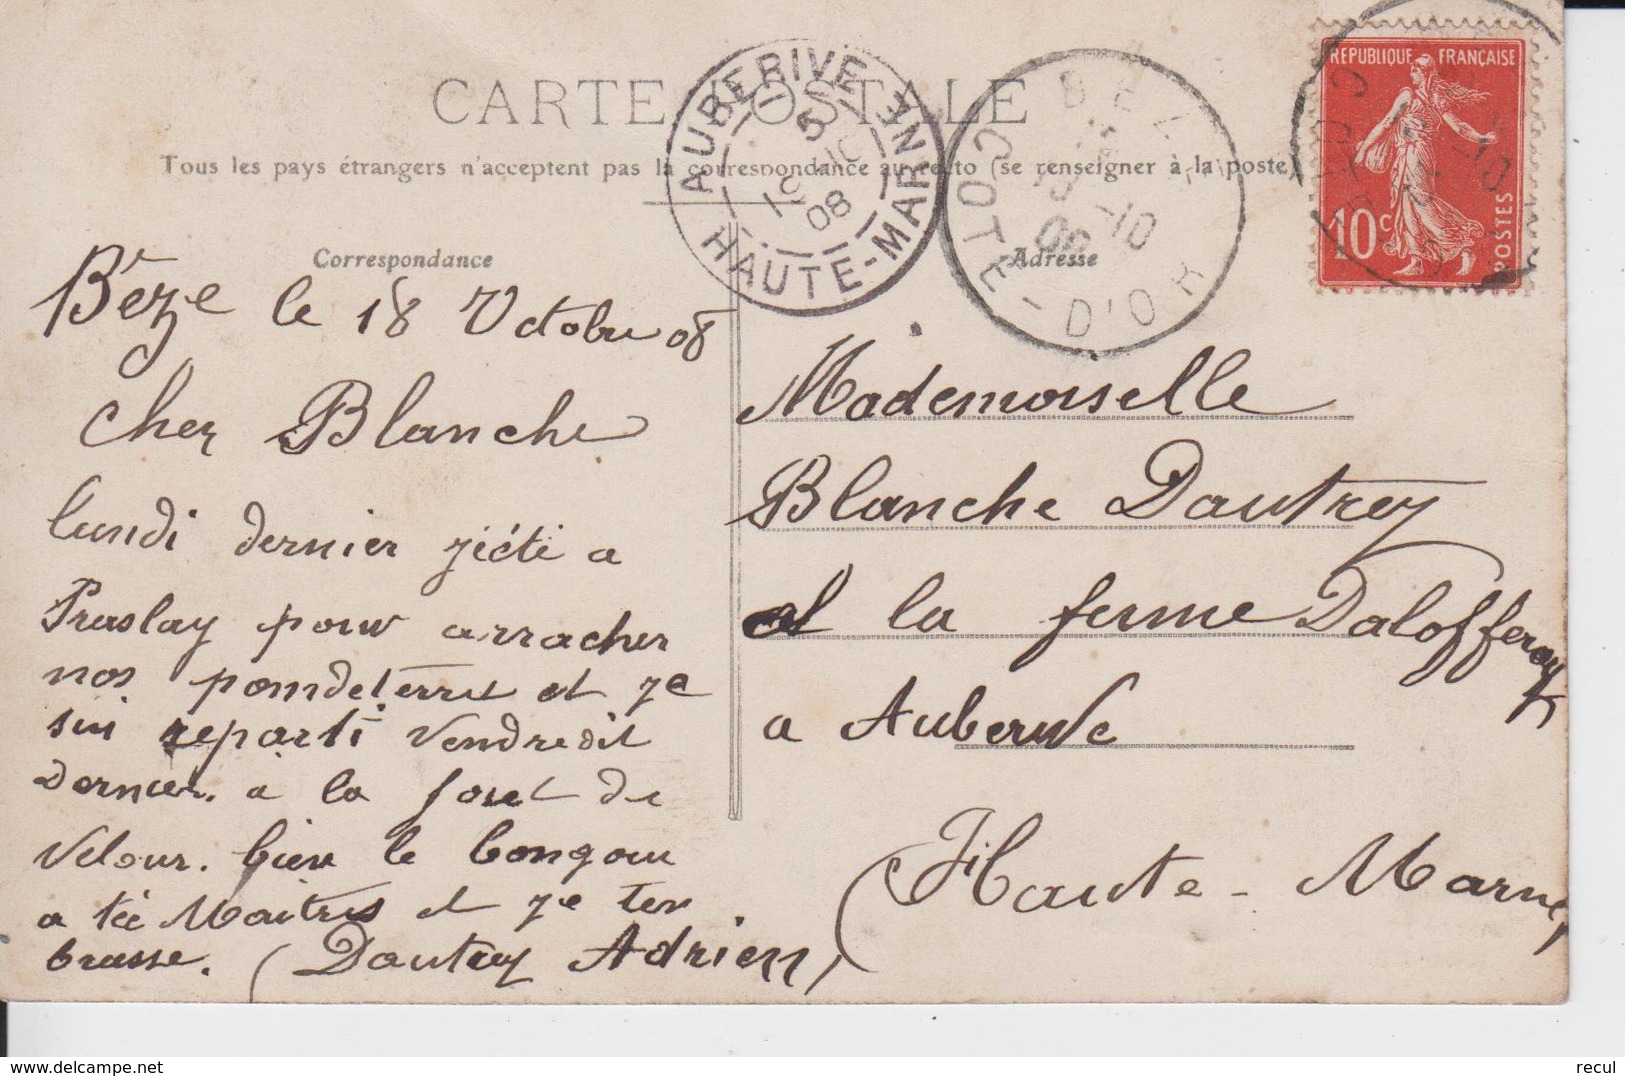 CARTE POSTALE
Tous les pays étrangers n'acceptent pas la correspondance au recto (se renseigner à la poste)
AUBERIVE
5
19 10
08
HAUTE-MARNE
BÈZE
18 -10
08
COTE-D'OR
REPUBLIQUE FRANÇAISE
10c
POSTES
Correspondance
Bèze le 18 Octobre 08
Cher Blanche
lundi dernier jiété a
Praslay pour arracher
nos pomdeterres et je
sui reparti Vendredit
dernier. a la foret de
Velour. bien le bongour
a téé Maitres et je ten
brasse. (Dautrey Adrien)
Adresse
Mademoiselle
Blanche Dautrey
a la ferme Dalofferay
a Auberive
(Haute-Marne)
delcampe.net
recul